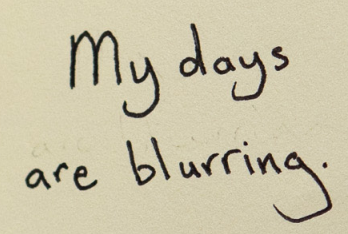 My days
are blurring.